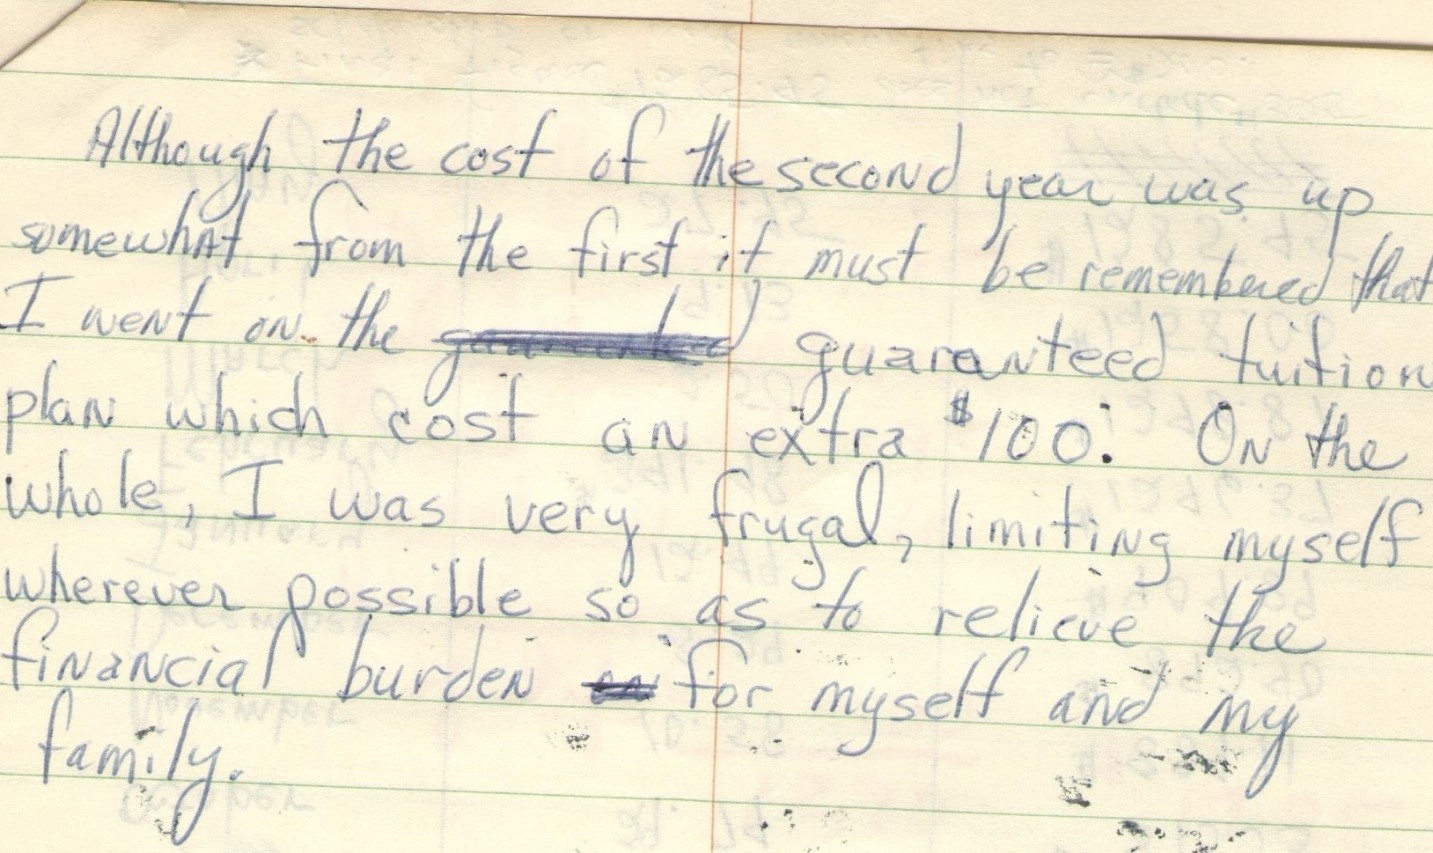 Although the cost of the second year was up
somewhat from the first it must be remembered that
I went on the guaranteed tuition
plan which cost an extra $100. On the
whole, I was very frugal, limiting myself
wherever possible so as to relieve the
financial burden for myself and my
family.